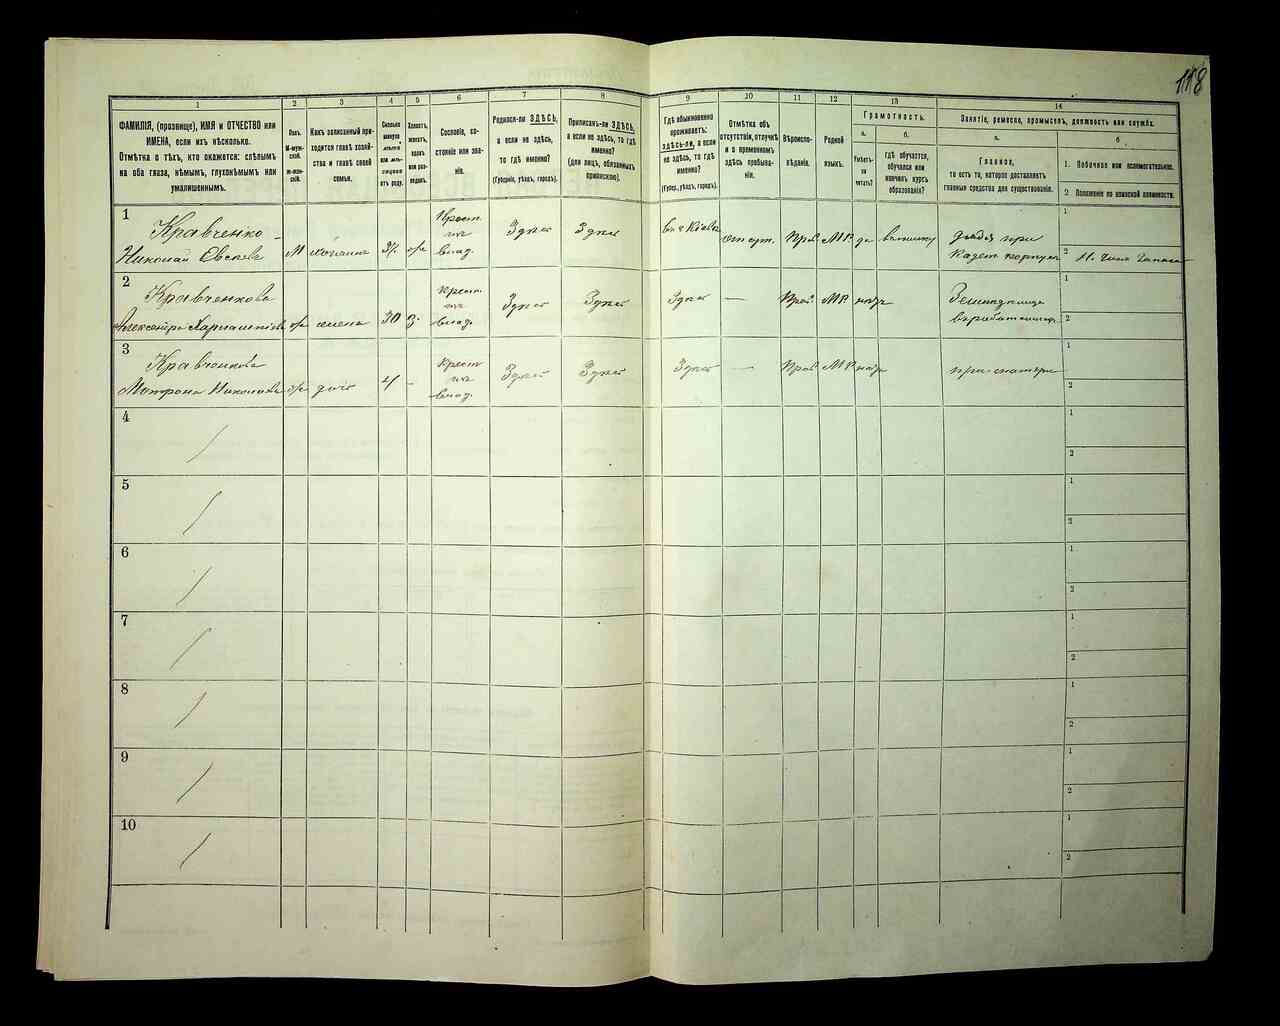 118
1 2 3 4 5 6 7 8 9 10 11 12 13 14
ФАМИЛІЯ, (прозвище), ИМЯ и ОТЧЕСТВО или
ИМЕНА, если ихъ нѣсколько.
Отмѣтка о тѣхъ, кто окажется: слѣпымъ
на оба глаза, нѣмымъ, глухонѣмымъ или
умалишеннымъ.
Полъ.
М-муж-
ской.
Ж-жен-
скій.
Какъ записанный при-
ходится главѣ хозяй-
ства и главѣ своей
семьи.
Сколько
минуло
лѣтъ
или мѣ-
сяцевъ
отъ роду.
Холостъ,
женатъ,
вдовъ
или раз-
веденъ.
Сословіе, со-
стояніе или зва-
ніе.
Родился-ли ЗДѢСЬ,
а если не здѣсь,
то гдѣ именно?
(Губернія, уѣздъ, городъ).
Приписанъ-ли ЗДѢСЬ,
а если не здѣсь, то гдѣ
именно?
(для лицъ, обязанныхъ
припискою).
Гдѣ обыкновенно
проживаетъ:
ЗДѢСЬ-ЛИ, а если
не здѣсь, то гдѣ
именно?
(Губер., уѣздъ, городъ).
Отмѣтка объ
отсутствіи, отлучкѣ
и о временномъ
здѣсь пребыва-
ніи.
Вѣроиспо-
вѣданіе.
Родной
языкъ.
Грамотность.
а.
Умѣетъ-
ли
читать?
б.
гдѣ обучается,
обучался или
кончилъ курсъ
образованія?
Занятіе, ремесло, промыселъ, должность или служба.
а.
Главное,
то есть то, которое доставляетъ
главныя средства для существованія.
б
1. Побочное или вспомогательное.
2. Положеніе по воинской повинности.
1
Кравченко
Николай
М
Крест.
из
влад.
Здѣсь
Здѣсь
в г. Кіевѣ
Прав
МР
да
дядя при
Кадет корпусѣ
1
2
2
Кравченкова
Александра
ж
жена
30
з.
Крест.
из
влад.
Здѣсь
Здѣсь
Здѣсь
—
Прав
МР
1
2
3
Кравченкова
Матрона
ж
дочь
4
-
Крест
из
влад.
Здѣсь
Здѣсь
Здѣсь
—
Прав
МР
при матери
1
2
4
1
2
5
1
2
6
1
2
7
1
2
8
1
2
9
1
2
10
1
2